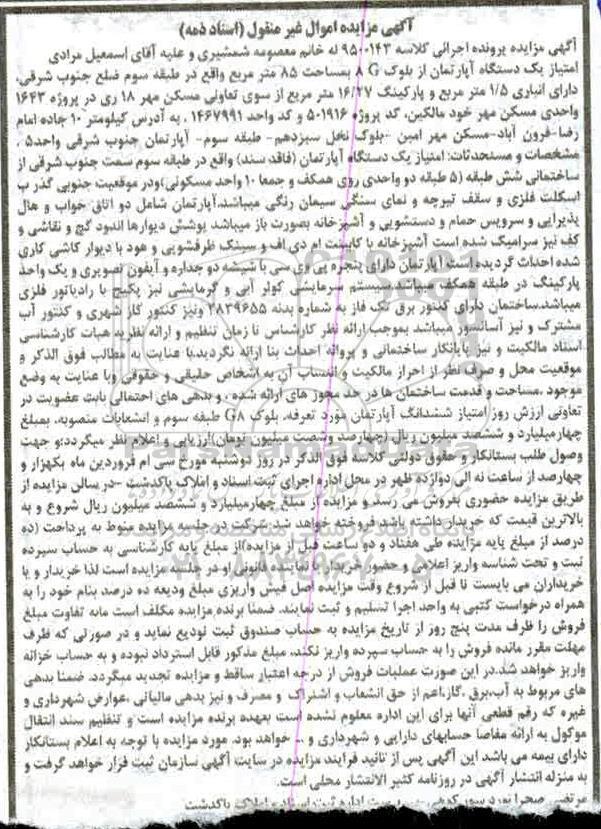 آگهی مزایده اموال غیر منقول (اسناد ذمه)
آگهی مزایده پرونده اجرائی کلاسه ۹۵۰۰۱۴۳ له خانم معصومه شمشیری و علیه آقای اسمعیل مرادی
امتیاز یک دستگاه آپارتمان از بلوک G ۸ بمساحت ۸۵ متر مربع واقع در طبقه سوم ضلع جنوب شرقی،
دارای انباری ۱/۵ متر مربع و پارکینگ ۱۶/۲۷ متر مربع از سوی تعاونی مسکن مهر ۱۸ ری در پروژه ۱۶۴۳
واحدی مسکن مهر خود مالکین، کد پروژه ۵۰۱۹۱۶ و کد واحد ۱۴۶۷۹۹۱ ، به آدرس کیلومتر ۱۰ جاده امام
رضا-فرون آباد-مسکن مهر امین -بلوک نخل سیزدهم- طبقه سوم- آپارتمان جنوب شرقی واحد۵ ،
مشخصات و مستحدثات: امتیاز یک دستگاه آپارتمان (فاقد سند) واقع در طبقه سوم سمت جنوب شرقی از
ساختمانی شش طبقه (۵ طبقه دو واحدی روی همکف و جمعا ۱۰ واحد مسکونی)ودر موقعیت جنوبی گذر با
اسکلت فلزی و سقف تیرچه و نمای سنگی سیمان رنگی میباشد.آپارتمان شامل دو اتاق خواب و هال
پذیرایی و سرویس حمام و دستشویی و آشپزخانه بصورت باز میباشد پوشش دیوارها اندود گچ و نقاشی و
کف نیز سرامیک شده است آشپزخانه با کابینت ام دی اف و سینک ظرفشویی و هود با دیوار کاشی کاری
شده احداث گردیده است آپارتمان دارای پنجره پی وی سی با شیشه دو جداره و آیفون تصویری و یک واحد
پارکینگ در طبقه همکف میباشد.سیستم سرمایشی کولر آبی و گرمایشی نیز پکیج با رادیاتور فلزی
میباشد.ساختمان دارای کنتور برق تک فاز به شماره بدنه ۲۸۳۹۶۵۵ ونیز کنتور گاز شهری و کنتور آب
مشترک و نیز آسانسور میباشد بموجب ارائه نظر کارشناس تا زمان تنظیم و ارائه نظریه هیات کارشناسی
اسناد مالکیت و نیز پایانکار ساختمانی و پروانه احداث بنا ارائه نگردید.با عنایت به مطالب فوق الذکر و
موقعیت محل و صرف نظر از احراز مالکیت و انتساب آن به اشخاص حقیقی و حقوقی وبا عنایت به وضع
موجود ،مساحت و قدمت ساختمان ها در حد مجوز های ارائه شده ، و بدهی های احتمالی بابت عضویت در
تعاونی ارزش روز امتیاز ششدانگ آپارتمان مورد تعرفه، بلوک G۸ طبقه سوم و انشعابات منصوبه، بمبلغ
چهارمیلیارد و ششصد میلیون ریال (چهارصد وشصت میلیون تومان)ارزیابی و اعلام نظر میگردد.و جهت
وصول طلب بستانکار و حقوق دولتی کلاسه فوق الذکر در روز دوشنبه مورخ سی ام فروردین ماه یکهزار و
چهارصد از ساعت نه الی دوازده ظهر در محل اداره اجرای ثبت اسناد و املاک پاکدشت -در سالن مزایده از
طریق مزایده حضوری بفروش می رسد و مزایده از مبلغ چهارمیلیارد و ششصد میلیون ریال شروع و به
بالاترین قیمت که خریدار داشته باشد فروخته خواهد شد شرکت در جلسه مزایده منوط به پرداخت (ده
درصد از مبلغ پایه مزایده طی هفتاد و دو ساعت قبل از مزایده)از مبلغ پایه کارشناسی به حساب سپرده
ثبت و تحت شناسه واریز اعلامی و حضور خریدار یا نماینده قانونی او در جلسه مزایده است لذا خریدار و یا
خریداران می بایست تا قبل از شروع وقت مزایده اصل فیش واریزی مبلغ ودیعه ده درصد بنام خود را به
همراه درخواست کتبی به واحد اجرا تسلیم و ثبت نمایند، ضمنا برنده مزایده مکلف است مابه تفاوت مبلغ
فروش را ظرف مدت پنج روز از تاریخ مزایده به حساب صندوق ثبت تودیع نماید و در صورتی که ظرف
مهلت مقرر مانده فروش را به حساب سپرده واریز نکند، مبلغ مذکور قابل استرداد نبوده و به حساب خزانه
واریز خواهد شد.در این صورت عملیات فروش از درجه اعتبار ساقط و مزایده تجدید میگردد، ضمنا بدهی
های مربوط به آب،برق ،گاز،اعم از حق انشعاب و اشتراک و مصرف و نیز بدهی مالیاتی ،عوارض شهرداری و
غیره که رقم قطعی آنها برای این اداره معلوم نشده است بعهده برنده مزایده است و تنظیم سند انتقال
موکول به ارائه مفاصا حسابهای دارایی و شهرداری و ... خواهد بود، مورد مزایده با توجه به اعلام بستانکار
دارای بیمه می باشد این آگهی پس از تائید فرایند مزایده در سایت آگهی سازمان ثبت قرار خواهد گرفت و
به منزله انتشار آگهی در روزنامه کثیر الانتشار محلی است.
مرتضی صحرا نورد سوزکوهی- سرپرست اداره ثبت اسناد و املاک پاکدشت